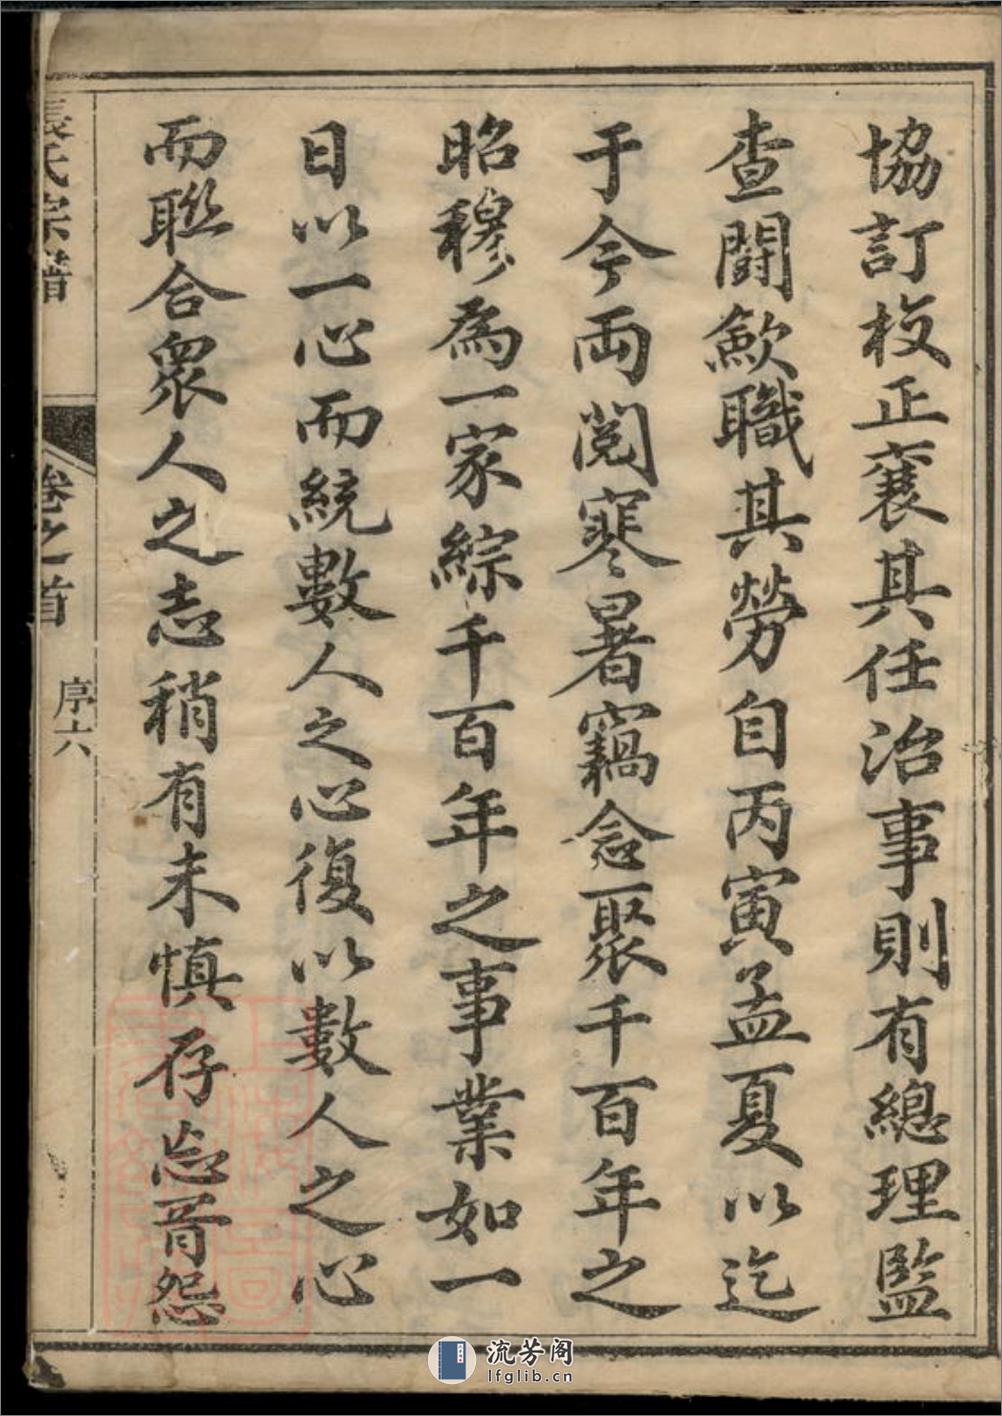 協訂校正襄其任治事則有總理監
查闘歃職其勞自丙寅孟夏以迄
于今兩閲寒暑竊念聚千百年之
昭穆爲一家綜千百年之事業如一
日以一心而統數人之心復以數人之心
而聯合眾人之志稍有未慎存忘胥怨
張氏宗譜
卷之首
序六
流芳阁
lfglib.cn